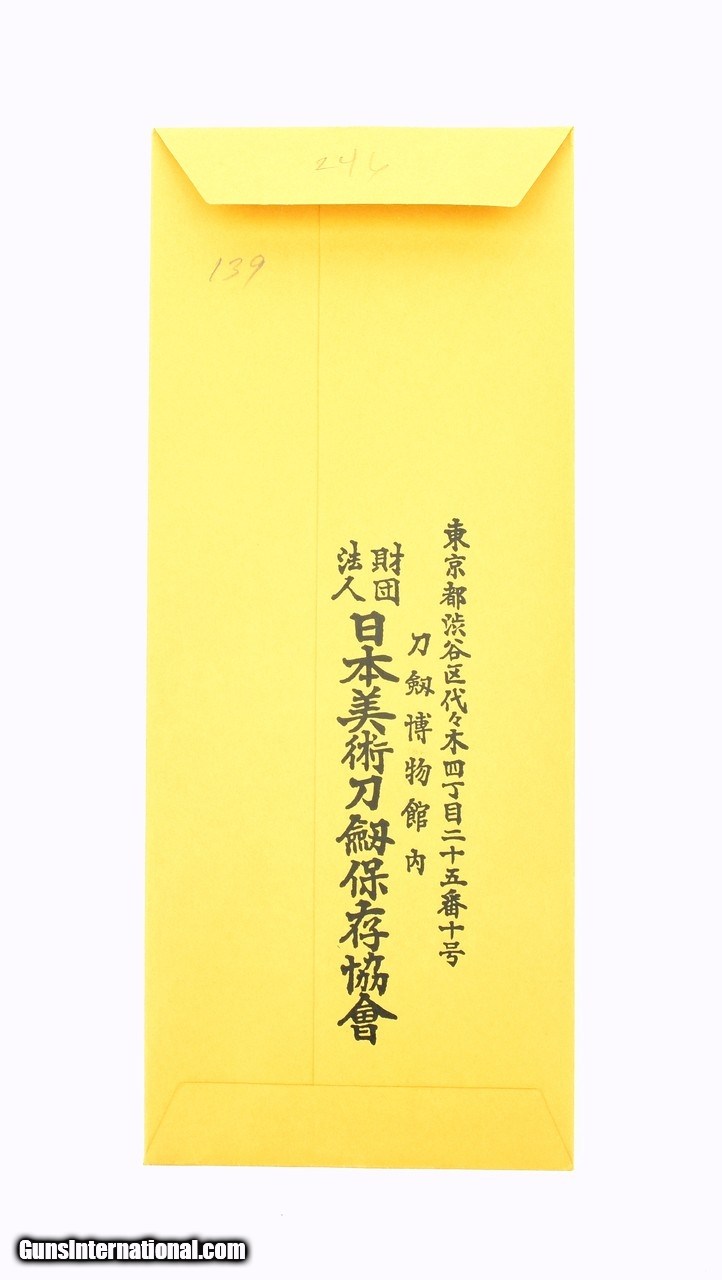 246
139
東京都渋谷区代々木四丁目二十五番十号
刀劔博物館内
財団法人
日本美術刀劔保存協會
GunsInternational.com